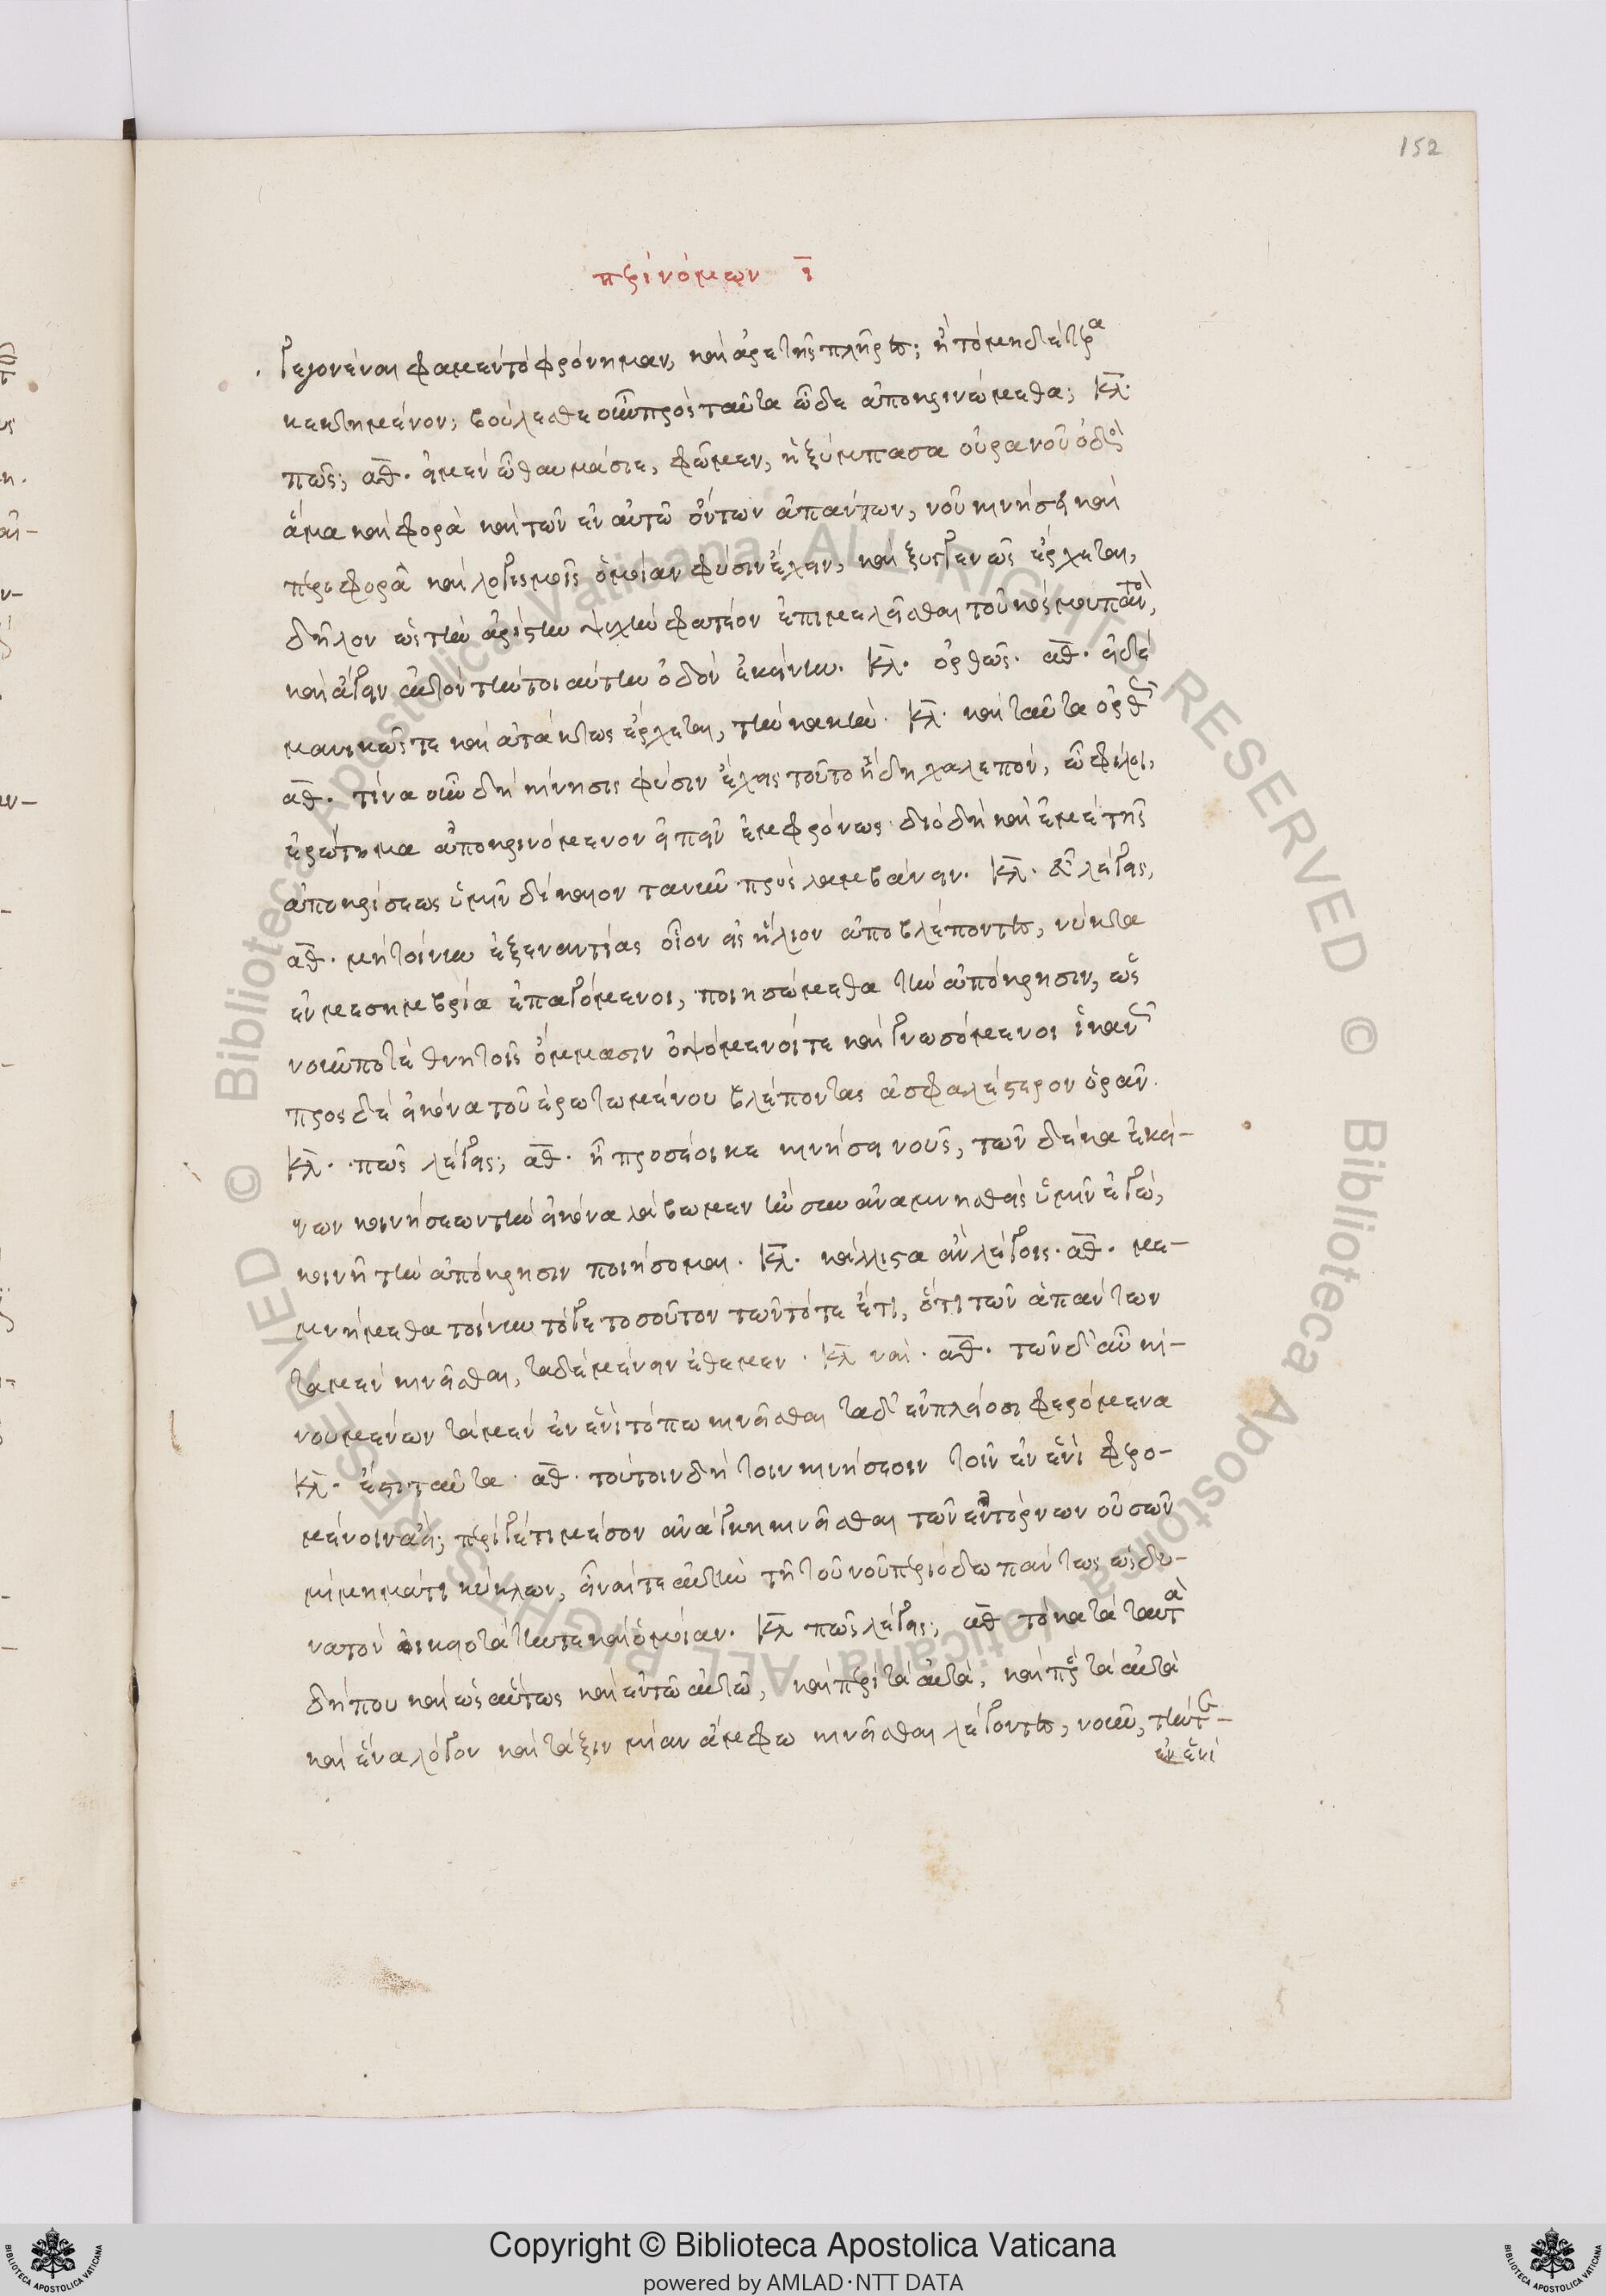 152
περὶ νόμων ῑ
γεγονέναι φαμὲν τὸ φρόνημαν, καὶ ἀρετῆς πλῆρες; ἢ τὸ μηδέτερα
κεκτημένον; βούλεσθε οὖν πρὸς ταῦτα ὧδε ἀποκρινώμεθα; κλ.
πῶς; αθ. εἰ μὲν ὦ θαυμάσιε, φῶμεν, ἡ ξύμπασα οὐρανοῦ ὁδὸς
ἅμα καὶ φορὰ καὶ τῶν ἐν αὐτῶ ὄντων ἁπάντων, νοῦ κινήσει καὶ
περιφορᾶ καὶ λογισμοῖς ὁμοίαν φύσιν ἔχει, καὶ ξυγγενῶς ἔρχεται,
δῆλον ὡς τὴν ἀρίστην ψυχὴν φατέον ἐπιμελεῖσθαι τοῦ κόσμου παντὸς,
καὶ ἄγειν αὐτὸν τὴν τοιαύτην ὁδὸν ἐκείνην. κλ. ὀρθῶς. αθ. εἰ δὲ
μανικῶς τε καὶ ἀτάκτως ἔρχεται, τὴν κακὴν. κλ. καὶ ταῦτα ὀρθῶς
αθ. τίνα οὖν δὴ κίνησις φύσιν ἔχει; τοῦτο ἤδη χαλεπὸν, ὦ φίλοι,
ἐρώτημα ἀποκρινόμενον εἰπεῖν ἐμφρόνως. διὸ δὴ καὶ ἐμὲ τῆς
ἀποκρίσεως ὑμῖν δίκαιον τανῦν προσλαμβάνειν. κλ. εὖ λέγεις,
αθ. μὴ τοίνυν ἐξεναντίας οἷον εἰς ἥλιον ἀποβλέποντες, νύκτα
ἐν μεσημβρία ἐπαγόμενοι, ποιησώμεθα τὴν ἀπόκρησιν, ὡς
νοῦν ποτὲ θνητοῖς ὄμμασιν ὀψόμενοί τε καὶ γνωσόμενοι ἱκανῶς
προς δὲ εἰκόνα τοῦ ἐρωτωμένου βλέποντας ἀσφαλέστερον ὁρᾶν.
κλ. πῶς λέγεις; αθ. ἧ προσέοικε κινήσει νοῦς, τῶν δέκα ἐκεί-
νων κινήσεων τὴν εἰκόνα λάβωμεν ἣν συναναμνησθεὶς ὑμῖν ἐγὼ,
κοινῇ τὴν ἀπόκρησιν ποιήσομαι. κλ. κάλλιστα ἂν λέγοις. αθ. με-
μνήμεθα τοίνυν τόγε τοσοῦτον τῶν τότε ἔτι, ὅτι τῶν ἁπάντων
τὰ μὲν κινεῖσθαι, τὰ δὲ μένειν ἔθεμεν. κλ ναί. αθ. τῶν δ᾽ αὖ κι-
νουμένων τὰ μὲν ἐν ἑνὶ τόπω κινεῖσθαι τὰ δ᾽ ἐν πλείοσι φερόμενα
κλ. ἔστι ταῦτα. αθ. τούτοιν δὴ τοῖν κινήσεοιν τοῖν ἐν ἑνὶ φερο-
μένοιν ἀεὶ; περίγέτι μέσον ἀνάγκη κινεῖσθαι τῶν ἐντόρνων οὐσῶν
μιμήματι κύκλων, εἶναί τε αὐτὴν τῆ τοῦ νοῦ περιόδω πάντως ὡς δυ-
νατὸν οἰκειοτάτην τε καὶ ὁμοίαν. κλ πῶς λέγεις; αθ τὸ κατὰ ταυτὰ
δήπου καὶ ὡσαύτως καὶ ἐν τῶ αὐτῶ, καὶ περὶ τὰ αὐτὰ, καὶ πρὸς τὰ αὐτὰ
καὶ ἕνα λόγον καὶ τάξιν μίαν ἄμφω κινεῖσθαι λέγοντες, νοῦν, τήν τ-
ἐν ἑνὶ